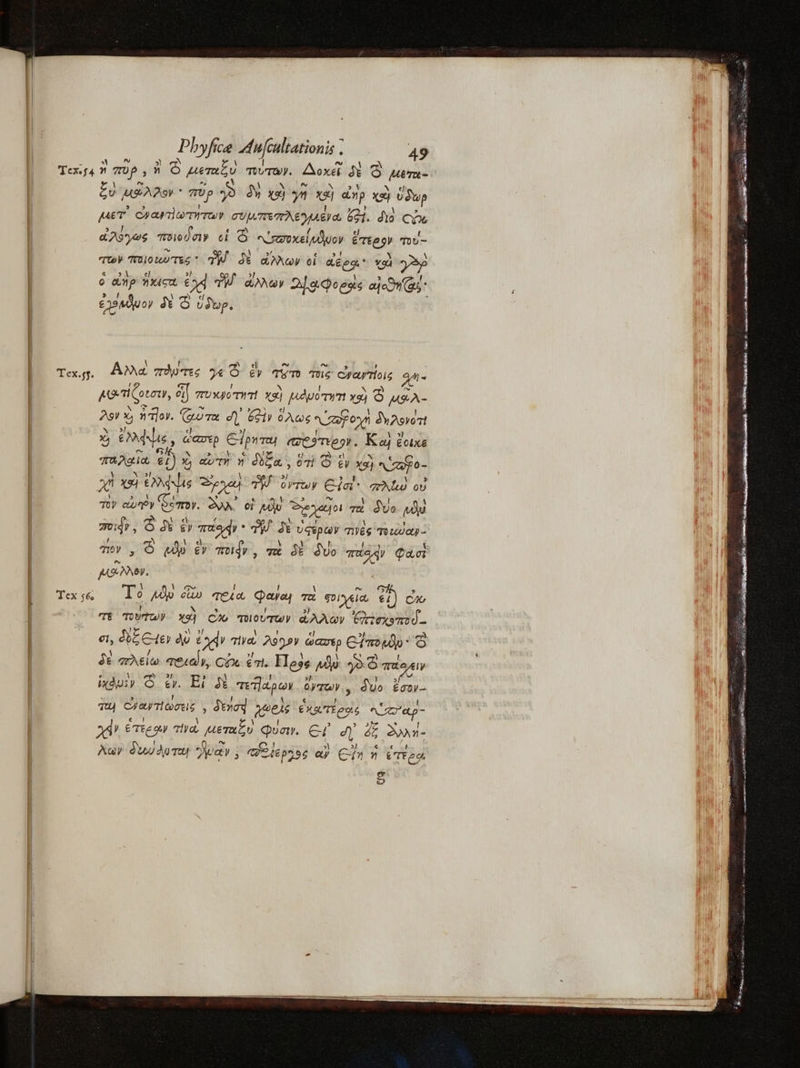 Physicæ Auscultationis. 49
Tex.54 ἢ πῦρ, ἢ τὸ μεταξὺ τούτων. Δοκεῖ δὲ τὸ μετα-
ξὺ μᾶλλον· πῦρ γὸ δὴ καὶ γῆ καὶ ἀὴρ καὶ ὕδωρ
μετ' ἐναντιοτήτων συμπεπλεγμένα ἐστί. διὸ οὐκ
ἀλόγως ποιοῦσιν οἱ τὸ ὑποκείμενον ἕτερον τού-
των ποιοῦντες· τῶν δὲ ἄλλων οἱ ἀέρα· καὶ γὰρ
ὁ ἀὴρ ἥκιστα ἔχει τῶν ἄλλων διαφορὰς αἰσθητάς·
ἐχόμενον δὲ τὸ ὕδωρ.
Tex.55. Ἀλλὰ πάντες γε τὸ ἓν τῦτο τοῖς ἐναντίοις χη-
ματίζουσιν, οἷ πυκνότητι καὶ μανότητι καὶ τὸ μᾶλ-
λον καὶ ἧττον. ταῦτα δ' ἐστὶν ὅλως ὑπεροχὴ δηλονότι
καὶ ἔλλειψις, ὥσπερ εἴρηται πρότερον. Καὶ ἔοικε
παλαιὰ εἶ) καὶ αὐτὴ ἡ δόξα, ὅτι τὸ ἓν καὶ ὑπερο-
χὴ καὶ ἔλλειψις ἀρχαὶ τῶν ὄντων εἰσί· πλὴν οὐ
τὸν αὐτὸν τρόπον. ἀλλ' οἱ μὲν ἀρχαῖοι τὰ δύο μὲν
ποιεῖν, τὸ δὲ ἓν πάσχειν· τῶν δὲ ὑστέρων τινὲς τοὐναν-
τίον, τὸ μὲν ἓν ποιεῖν, τὰ δὲ δύο πάσχειν φασὶ
μᾶλλον.
Tex 56. Τὸ μὲν οὖν τρία φάναι τὰ στοιχεῖα εἶ) ἔκ
τε τούτων καὶ ἐκ τοιούτων ἄλλων ἐπισκοποῦ-
σι, δόξειεν ἂν ἔχειν τινὰ λόγον ὥσπερ εἴπομεν· τὸ
δὲ πλείω τριῶν, οὐκ ἔτι. Πρὸς μὲν γὸ τὸ πάσχειν
ἱκανὸν τὸ ἕν. Εἰ δὲ τεττάρων ὄντων, δύο ἔσον-
ται ἐναντιώσεις, δεήσει χωρὶς ἑκατέραις ὑπάρ-
χειν ἑτέραν τινὰ μεταξὺ φύσιν. Εἰ δ' ἐξ ἀλλή-
λων δύνανται γεννᾶν, περίεργος ἂν εἴη ἡ ἑτέρα
g